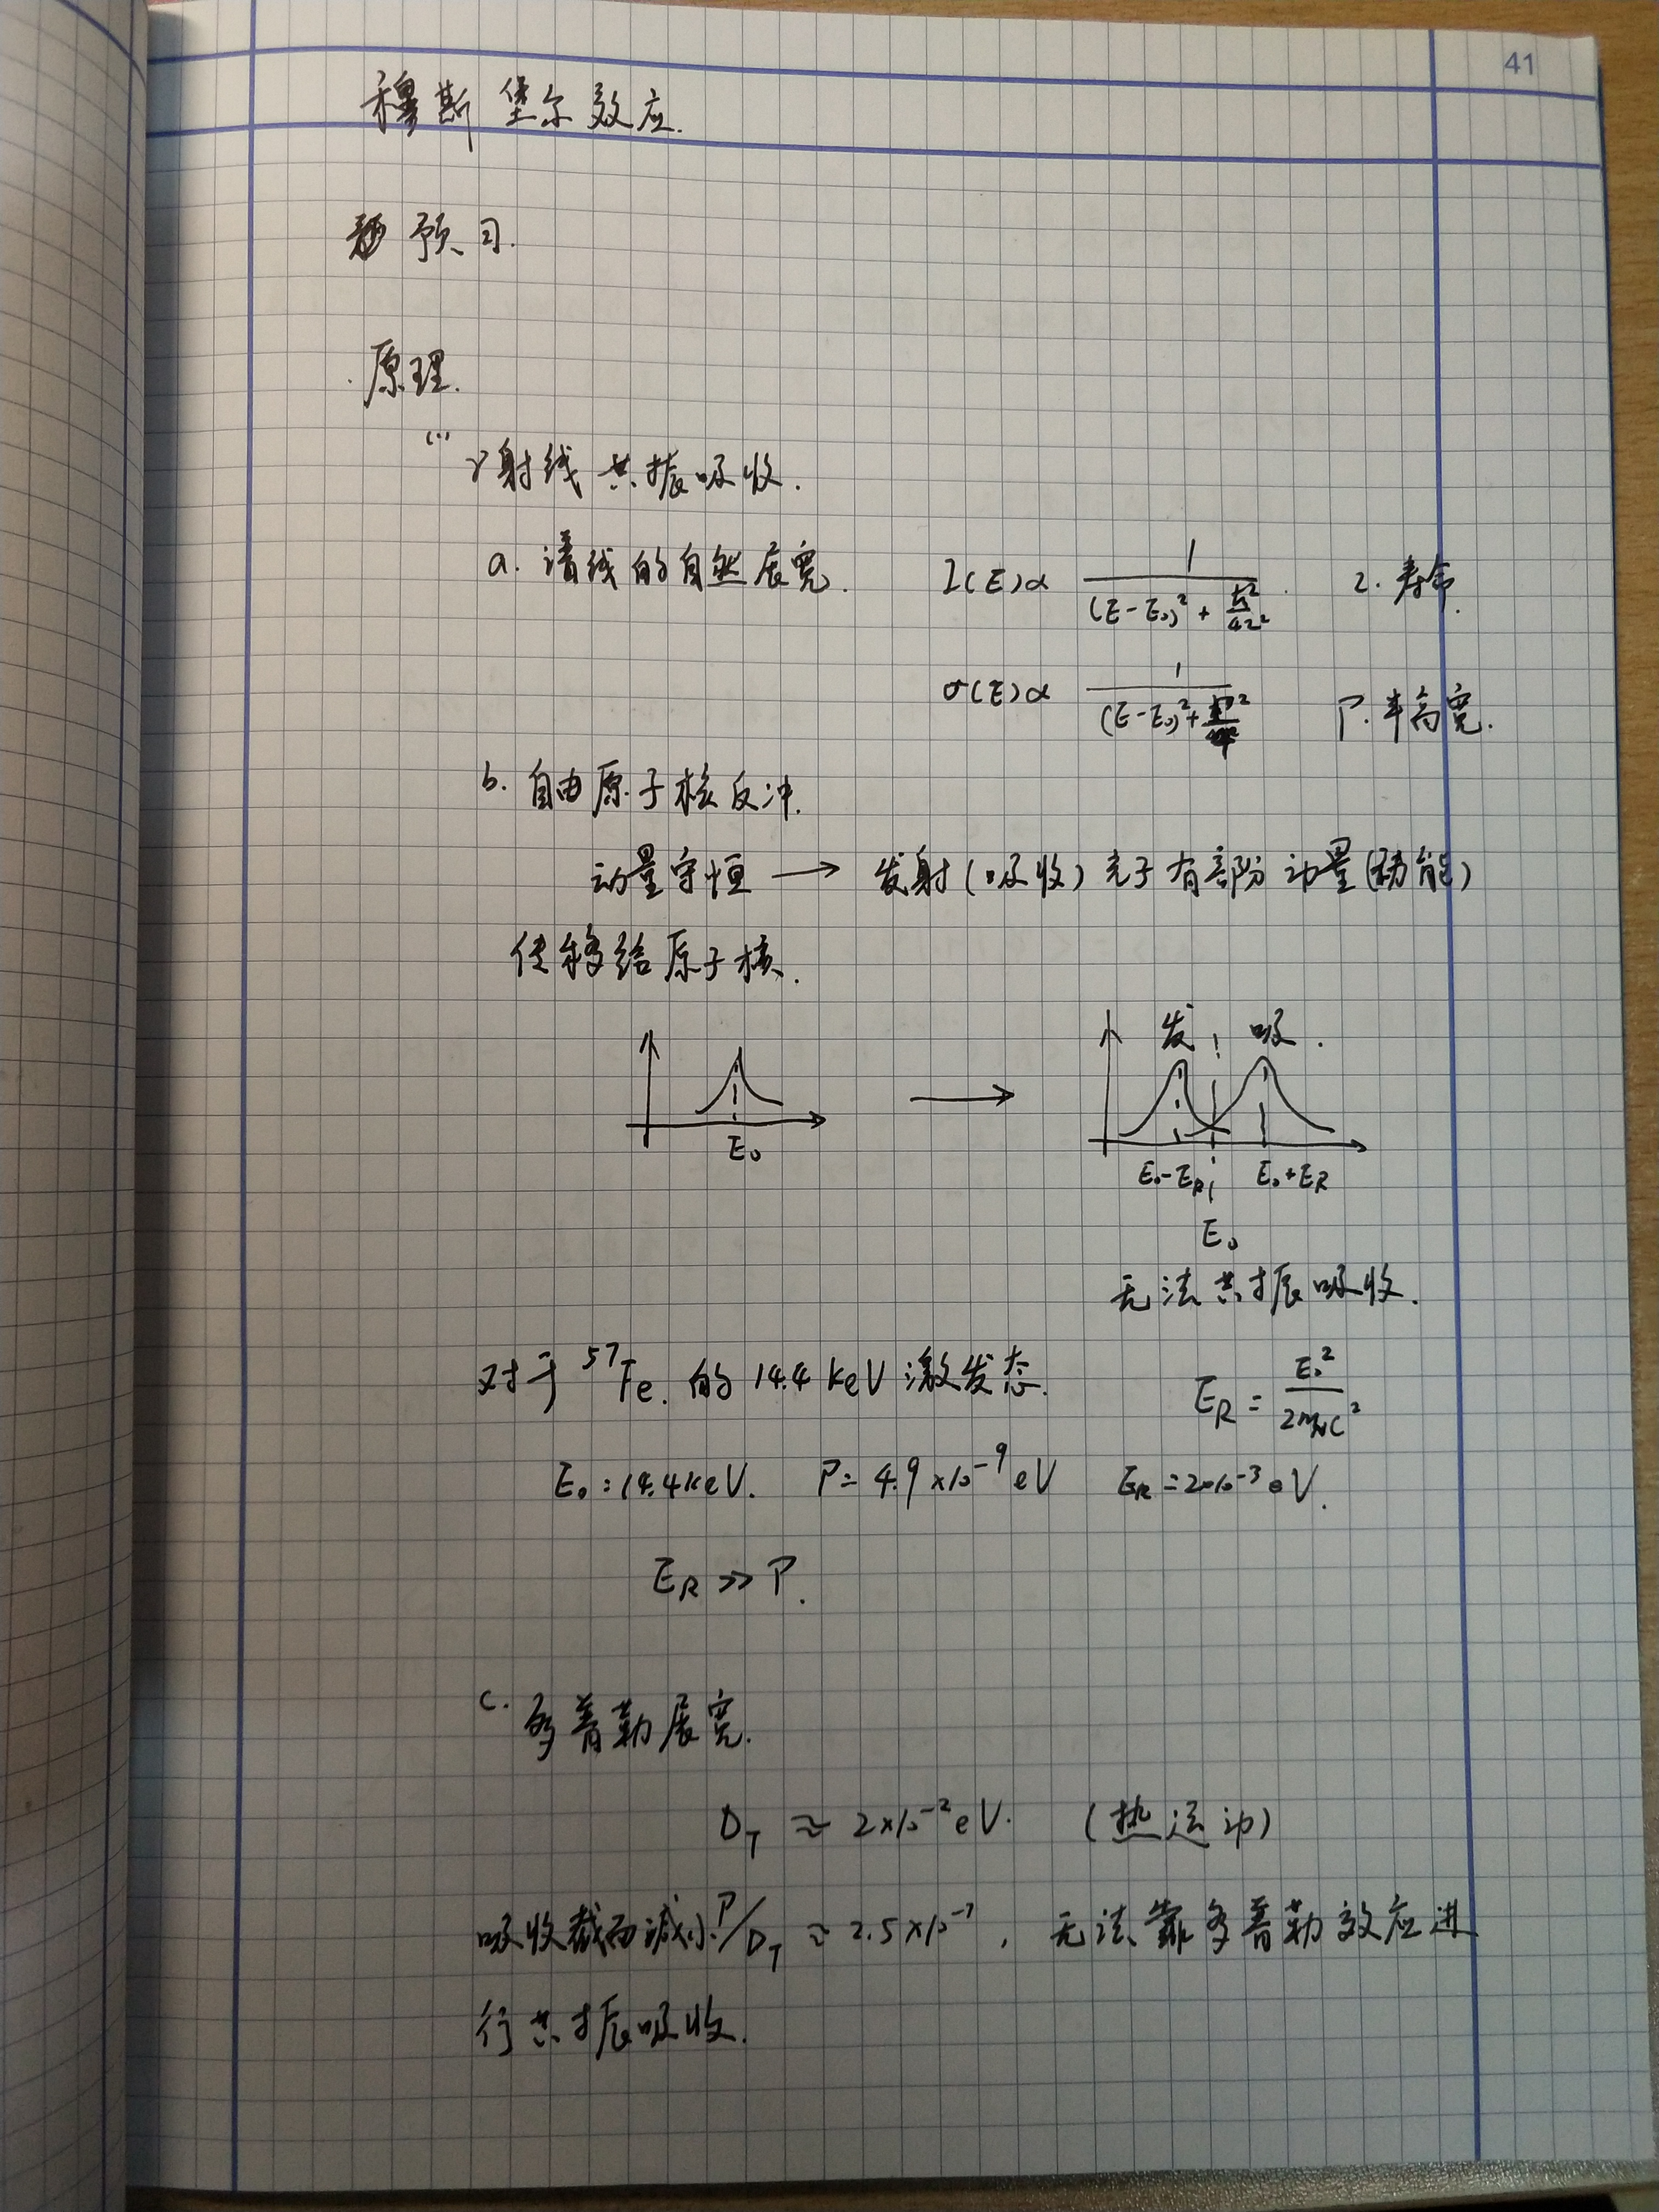 41
穆斯堡尔效应.
预习.
原理.
(1)
γ射线共振吸收.
a. 谱线的自然展宽. I(E)∝ 1/((E-E₀)²+ħ²/4τ²) τ. 寿命.
σ(E)∝ 1/((E-E₀)²+Γ²/4) Γ. 半高宽.
b. 自由原子核反冲.
动量守恒 → 发射(吸收)光子有部分动量(动能)
传移给原子核.
发 吸.
E₀ → E₀-E_R E₀+E_R
E₀
无法共振吸收.
对于 ⁵⁷Fe. 的 14.4 keV 激发态. E_R = E₀²/2m_Nc²
E₀=14.4keV. Γ= 4.9×10⁻⁹ eV E_R=2×10⁻³ eV.
E_R >> Γ.
c. 多普勒展宽.
D_T ≈ 2×10⁻² eV. (热运动)
吸收截面减小Γ/D_T ≈ 2.5×10⁻⁷, 无法靠多普勒效应进
行共振吸收.